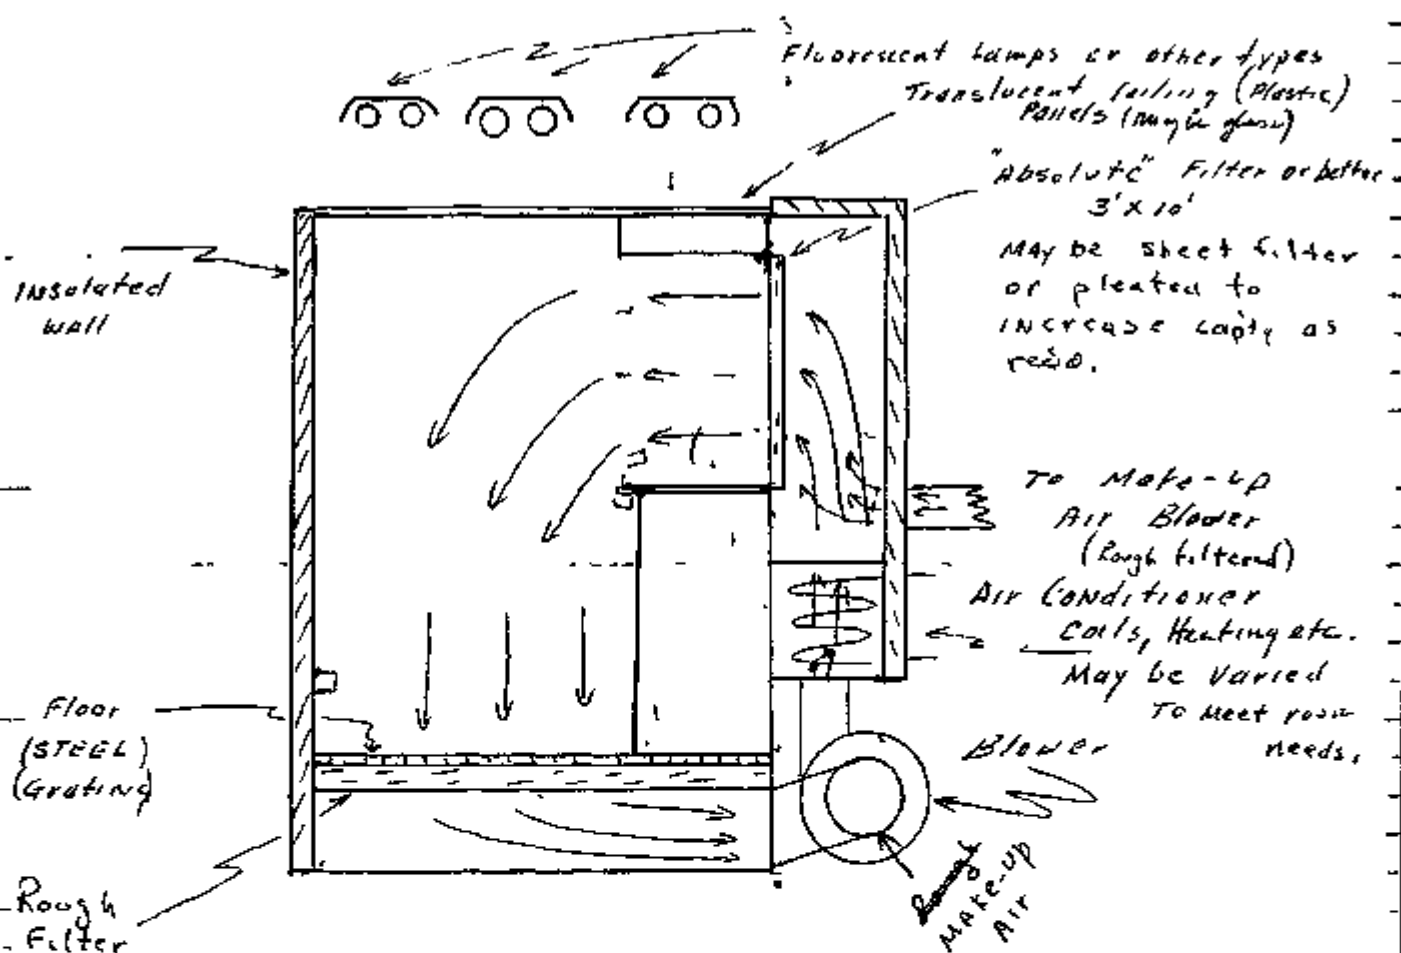 Fluorescent Lamps or other types
Translucent Ceiling (Plastic)
Panels (maybe glass)
"Absolute" Filter or better
3' x 10'
MAY be sheet filter
or pleated to
INcrease capty as
reqd.
INsulated
wall
To Make-up
Air Blower
(Rough filtered)
Air Conditioner
Coils, Heating etc.
May be Varied
To Meet room
needs.
Floor
(STEEL)
(Grating)
Blower
Rough
Filter
Make-up
Air